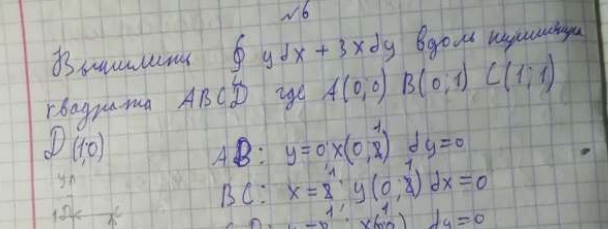 №6
Вычислить ∮ ydx + 3xdy вдоль периметра
квадрата ABCD где A(0;0) B(0;1) C(1;1)
D(1;0)
AB: y=0 x(0;1) dy=0
BC: x=1; y(0;1) dx=0